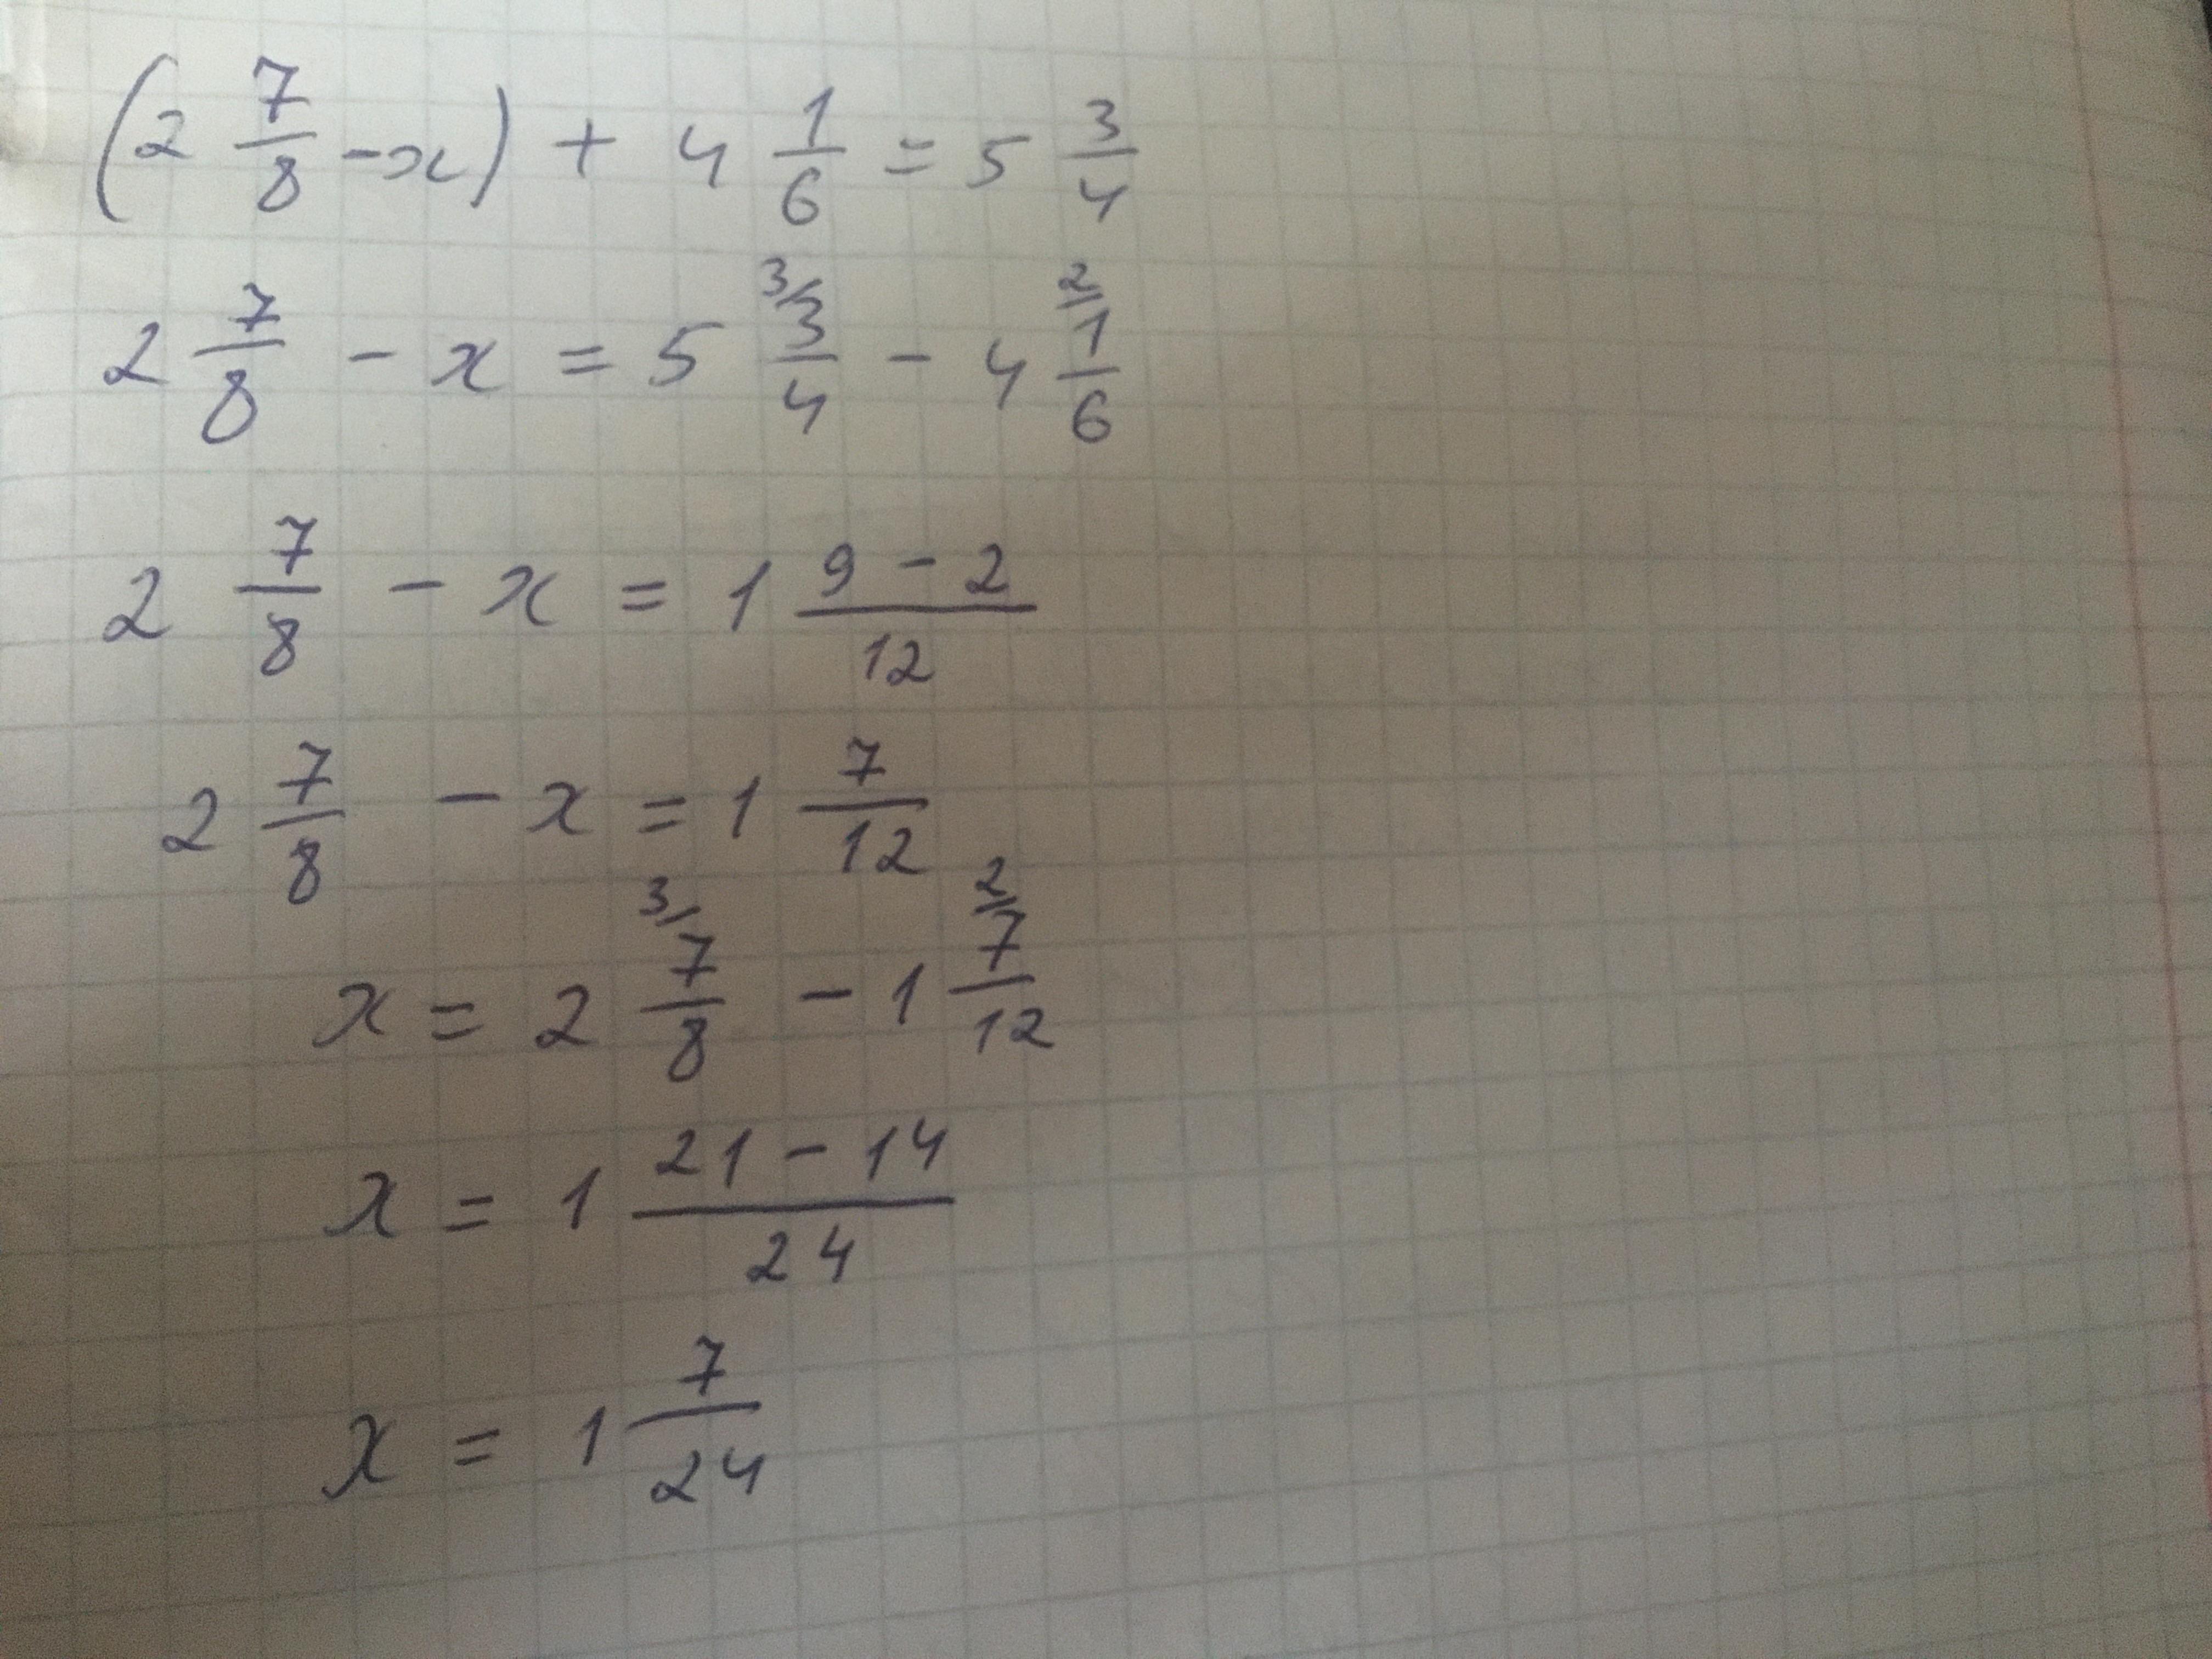 (2 7/8 - x) + 4 1/6 = 5 3/4
2 7/8 - x = 5 ³⁄ 3/4 - 4 ²⁄ 1/6
2 7/8 - x = 1 (9 - 2)/12
2 7/8 - x = 1 7/12
x = 2 ³⁄ 7/8 - 1 ²⁄ 7/12
x = 1 (21 - 14)/24
x = 1 7/24